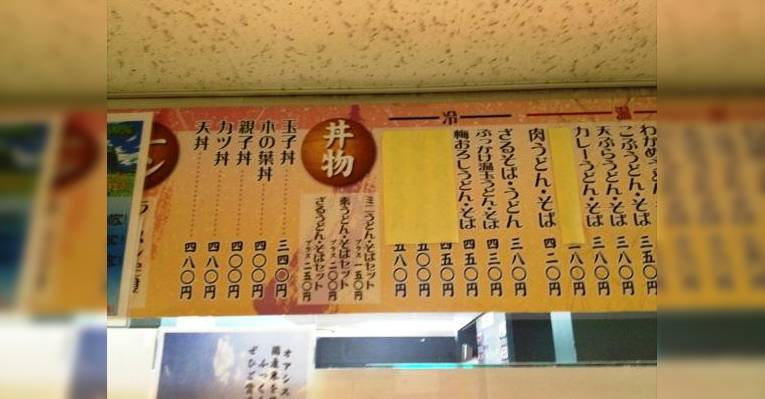 温
わかめうどん・そば 三五〇円
こぶうどん・そば 三八〇円
天ぷらうどん・そば 三八〇円
カレーうどん・そば 三八〇円
肉うどん・そば 四二〇円
冷
ざるそば・うどん 三八〇円
ぶっかけ温玉うどん・そば 四三〇円
梅おろしうどん・そば 四五〇円
丼物
ミニうどん・そばセット プラス一五〇円
素うどん・そばセット プラス二〇〇円
ざるうどん・そばセット プラス二五〇円
玉子丼 三四〇円
木の葉丼 四〇〇円
親子丼 四〇〇円
カツ丼 四八〇円
天丼 四八〇円
オアシス